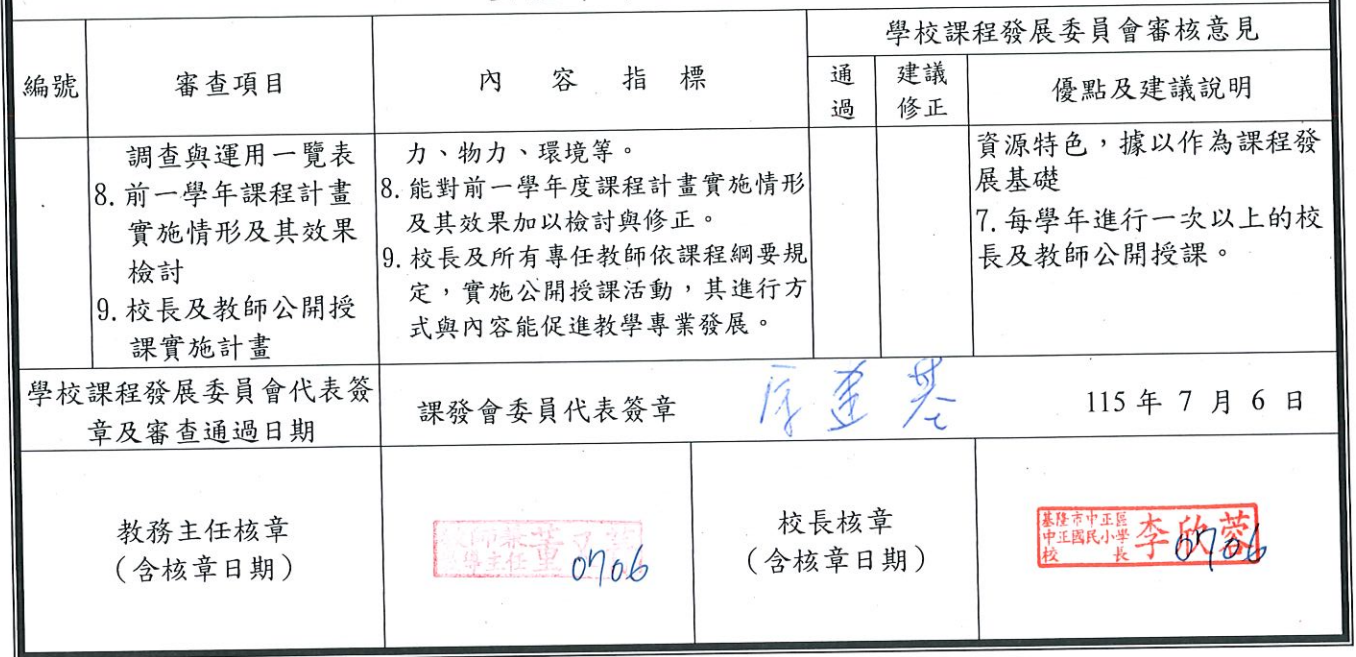 學校課程發展委員會審核意見
編號
審查項目
內容指標
通過
建議修正
優點及建議說明
調查與運用一覽表
8.前一學年課程計畫
實施情形及其效果
檢討
9.校長及教師公開授
課實施計畫
力、物力、環境等。
8.能對前一學年度課程計畫實施情形
及其效果加以檢討與修正。
9.校長及所有專任教師依課程綱要規
定，實施公開授課活動，其進行方
式與內容能促進教學專業發展。
資源特色，據以作為課程發
展基礎
7.每學年進行一次以上的校
長及教師公開授課。
學校課程發展委員會代表簽
章及審查通過日期
課發會委員代表簽章
建基
115 年 7 月 6 日
教務主任核章
(含核章日期)
教師兼
主任
董
0706
校長核章
(含核章日期)
基隆市中正區
中正國民小學
校長
李欣蓉
0706